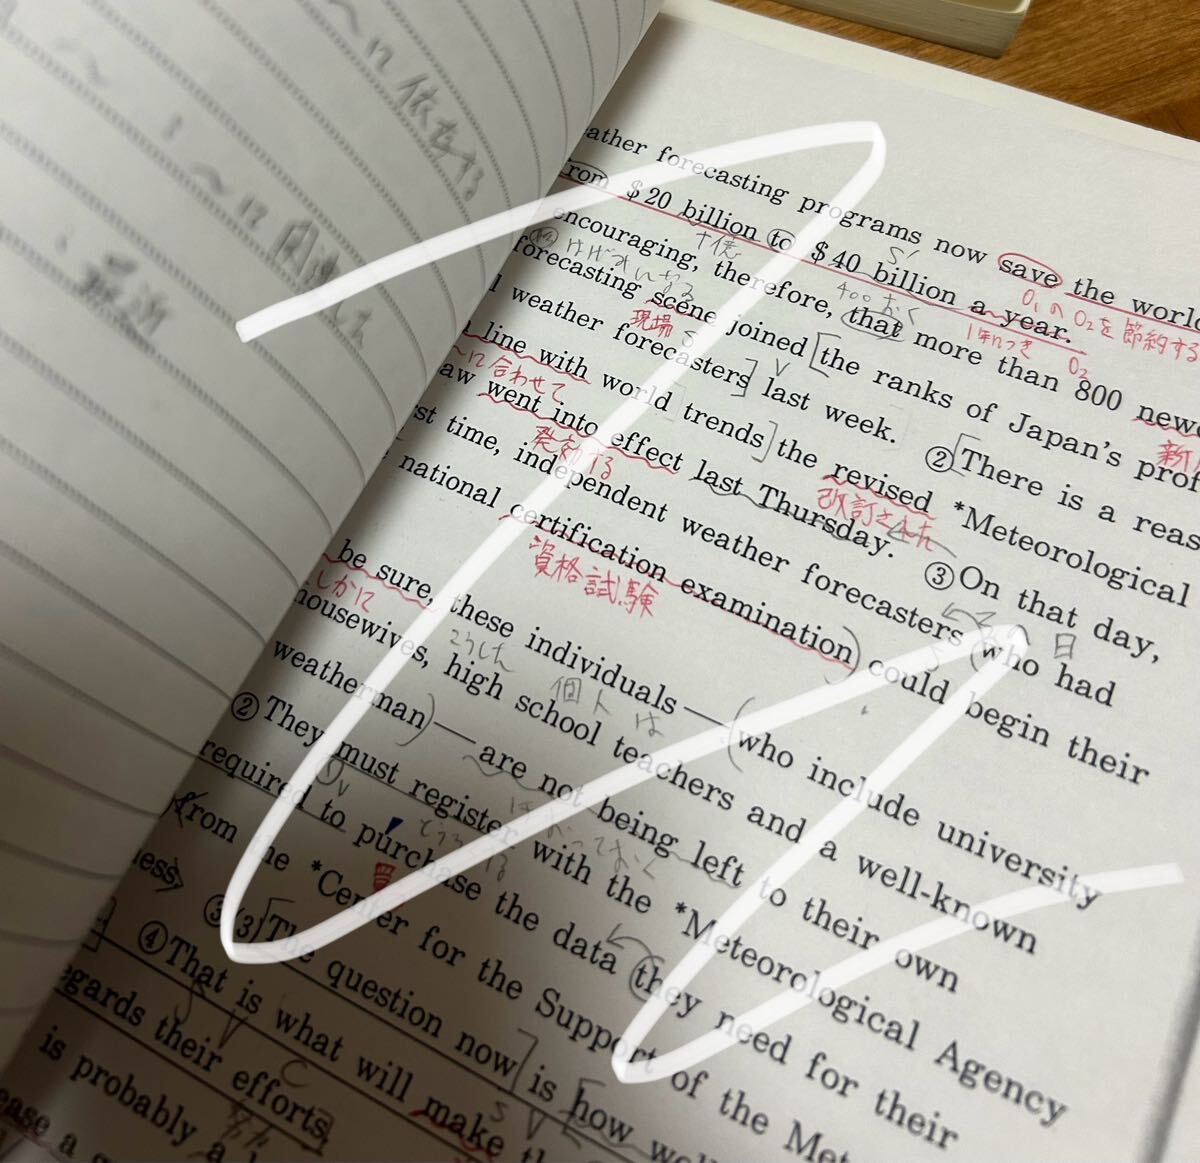 〜に依存する
ather forecasting programs now save the world
from $20 billion to $40 billion a year.
十億
400おく
1年につき
O₁のO₂を節約する
encouraging, therefore, that more than 800 newc
はげみになる
forecasting scene joined the ranks of Japan's prof
現場
l weather forecasters last week. ②There is a reas
line with world trends the revised *Meteorological
〜に合わせて
改訂された
aw went into effect last Thursday. ③On that day,
発効する
日
st time, independent weather forecasters who had
national certification examination could begin their
資格試験
be sure, these individuals—(who include university
しかに
こうした
個人は
housewives, high school teachers and a well-known
weatherman)—are not being left to their own
ほおっておく
②They must register with the *Meteorological Agency
とうろくする
required to purchase the data they need for their
買
from the *Center for the Support of the Met
less〉 ③The question now is how well
④That is what will make th
egards their efforts,
努力
is probably a
ease a